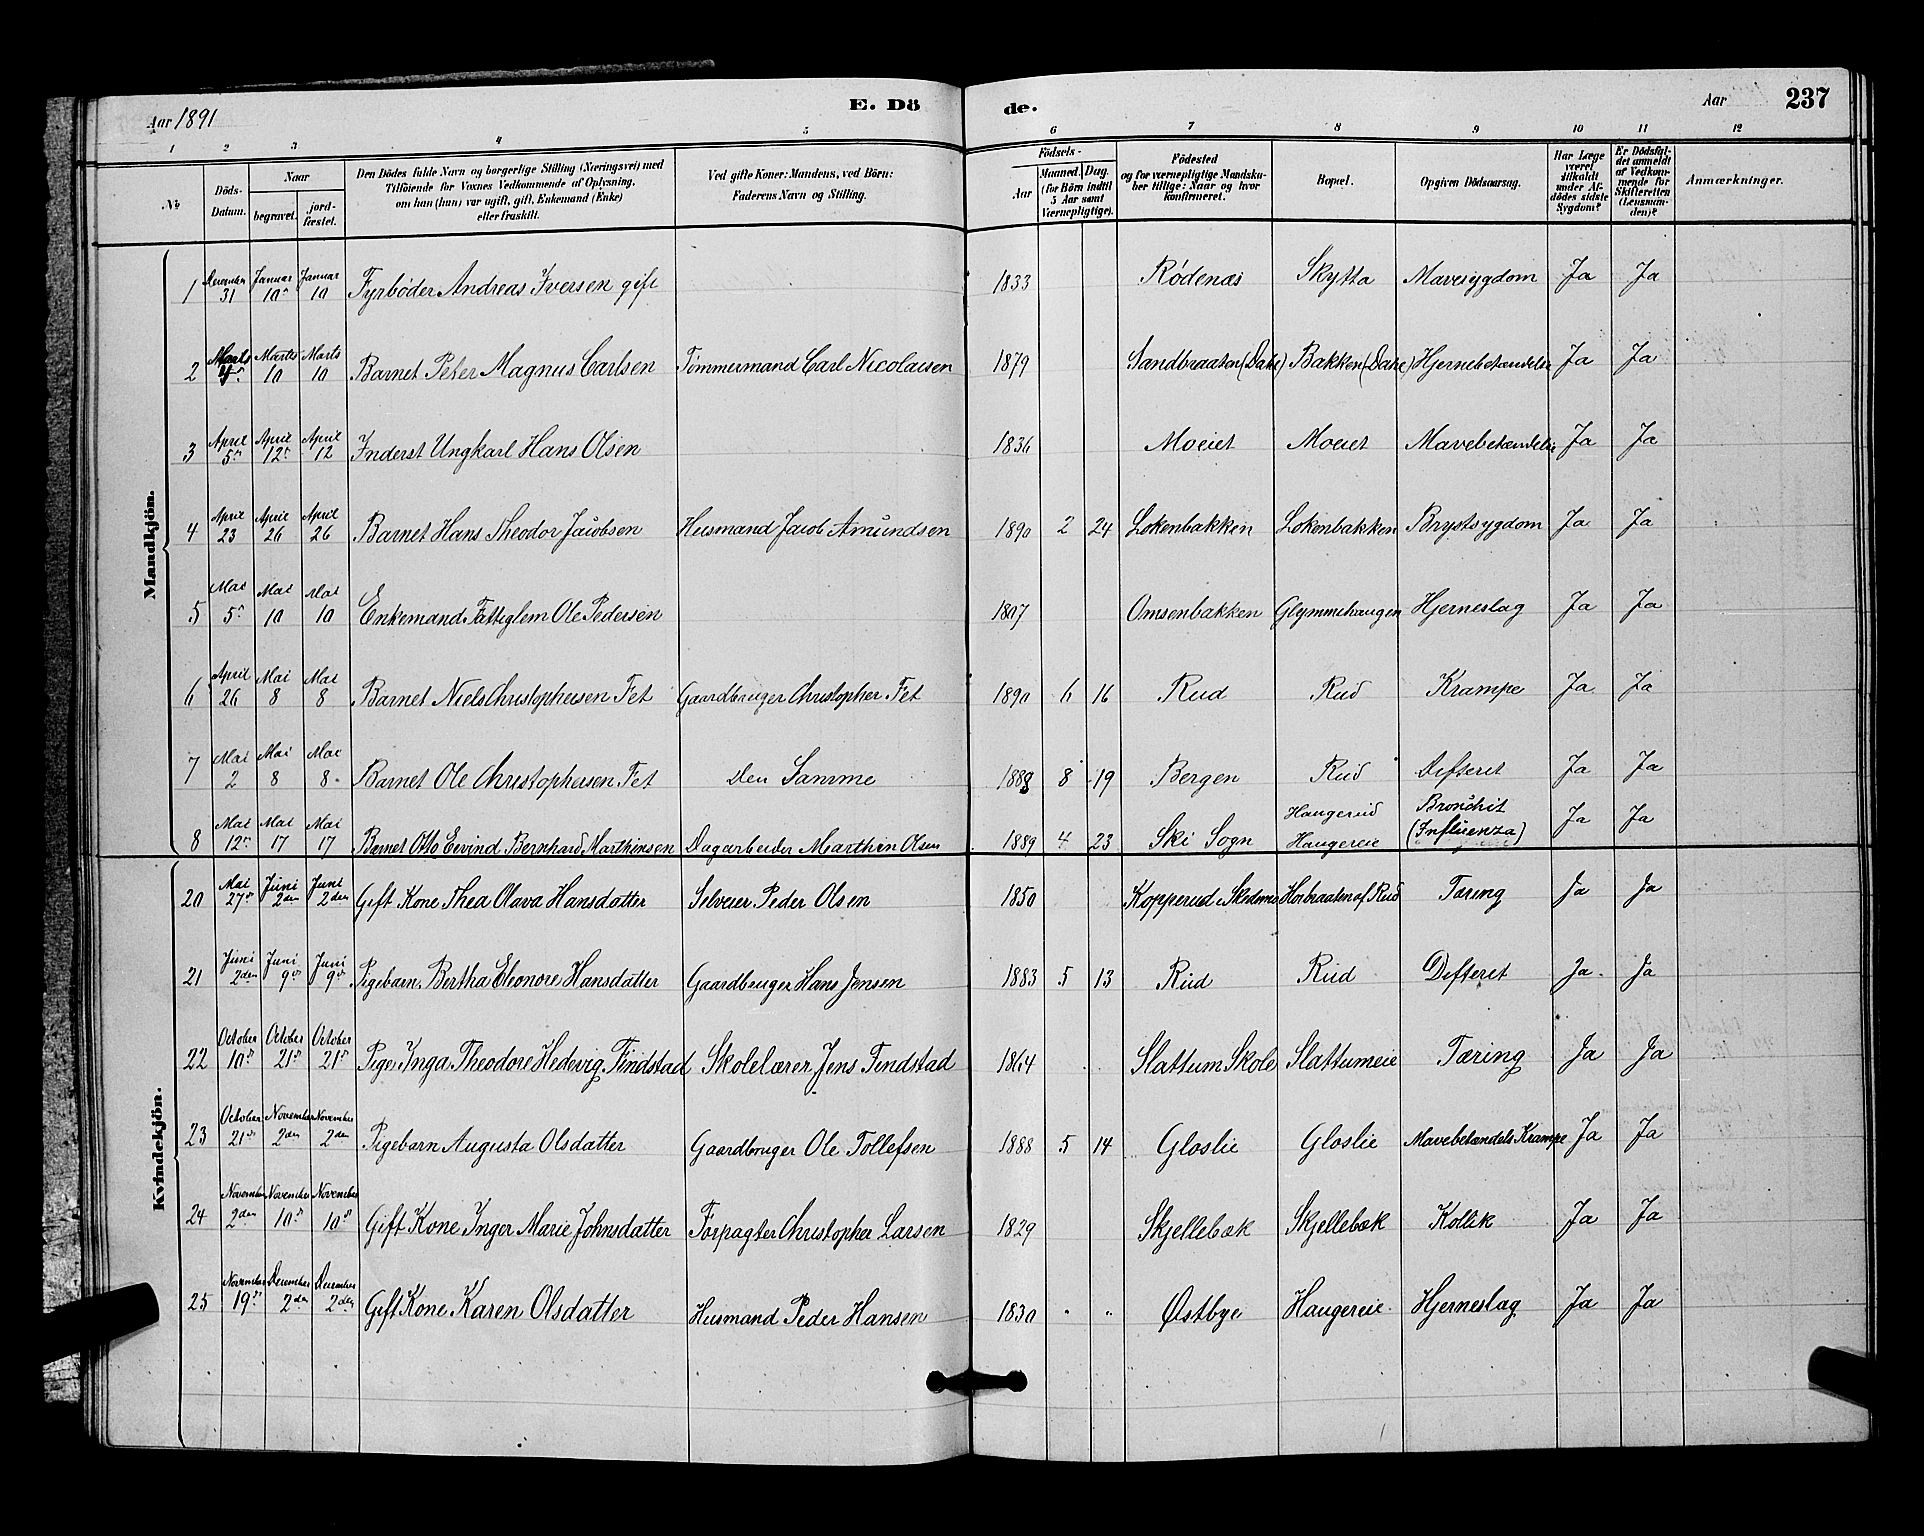 Aar 1891 E. Dö de. Aar 237
1 2 3 4 5 6 7 8 9 10 11 12
No
Döds-Datum.
Naar
begravet.
jord-fæstet.
Den Dödes fulde Navn og borgerlige Stilling (Næringsvei) med
Tilföiende for Voxnes Vedkommende af Oplysning,
om han (hun) var ugift, gift, Enkemand (Enke)
eller fraskilt.
Ved gifte Koner: Mandens, ved Börn:
Faderens Navn og Stilling.
Födsels-
Aar
Maaned. Dag.
(for Börn indtil
5 Aar samt
Værnepligtige).
Födested
og for værnepligtige Mandska-
ber tillige: Naar og hvor
konfirmeret.
Bopæl.
Opgiven Dödsaarsag.
Har Læge
været
tilkaldt
under Af-
dödes sidste
Sygdom?
Er Dödsfal-
det anmeldt
af Vedkom-
mende for
Skifteretten
(Lensman-
den)?
Anmærkninger.
Mandkjön.
1 December 31 Januar 10 Januar 10 Fyrbøder Andreas Iversen gift 1833 Rødenæs Skytta Mavesygdom Ja Ja
2 Marts Marts 10 Marts 10 Barnet Peter Magnus Carlsen Tømmermand Carl Nicolaisen 1879 Sandbraaten (Dahl) Bakken (Dahl) Hjernebetændelse Ja Ja
3 April 5 April 12 April 12 Inderst Ungkarl Hans Olsen 1836 Moeiet Moeiet Mavebetændelse Ja Ja
4 April 23 April 26 April 26 Barnet Hans Theodor Jacobsen Husmand Jacob Amundsen 1890 2 24 Løkenbakken Løkenbakken Brystsygdom Ja Ja
5 Mai 5 Mai 10 Mai 10 Enkemand Fattiglem Ole Pedersen 1807 Omsenbakken Glymmehaugen Hjerneslag Ja Ja
6 April 26 Mai 8 Mai 8 Barnet Niels Christophersen Fet Gaardbruger Christopher Fet 1890 6 16 Rud Rud Krampe Ja Ja
7 Mai 2 Mai 8 Mai 8 Barnet Ole Christophersen Fet Den Samme 1888 8 19 Bergen Rud Difteret Ja Ja
8 Mai 12 Mai 17 Mai 17 Barnet Otto Eivind Bernhard Marthinsen Dagarbeider Marthin Olsen 1889 4 23 Ski Sogn Haugerud Haugereie Bronchit (Influenza) Ja Ja
Kvindekjön.
20 Mai 27 Juni 2den Juni 2den Gift Kone Thea Olava Hansdatter Selveier Peder Olsen 1850 Kopperud Horbraaten af Rud Tæring Ja Ja
21 Juni 2den Juni 9 Juni 9 Pigebarn Bertha Eleonore Hansdatter Gaardbruger Hans Jensen 1883 5 13 Rud Rud Difteret Ja Ja
22 October 10 October 21 October 21 Pige Inga Theodore Hedevig Findstad Skolelærer Jens Findstad 1864 Slattum Skole Slattumeie Tæring Ja Ja
23 October 21 November 2den November 2den Pigebarn Augusta Olsdatter Gaardbruger Ole Tollefsen 1888 5 14 Gloslie Gloslie Mavebetændels Krampe Ja Ja
24 November 2den November 10 November 10 Gift Kone Inger Marie Johnsdatter Forpagter Christopher Larsen 1829 Skjellebæk Skjellebæk Kollik Ja Ja
25 November 19 December 2den December 2den Gift Kone Karen Olsdatter Husmand Peder Hansen 1830 " " Østbye Haugereie Hjerneslag Ja Ja